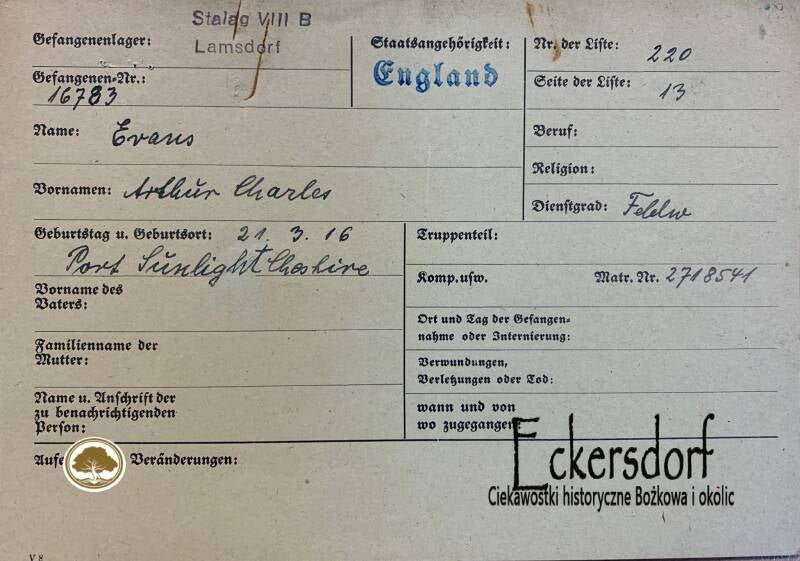 Stalag VIII B
Gefangenenlager: Lamsdorf
Gefangenen-Nr.: 16783
Staatsangehörigkeit: England
Nr. der Liste: 220
Seite der Liste: 13
Name: Evans
Beruf:
Religion:
Vornamen: Arthur Charles
Dienstgrad: Feldw
Geburtstag u. Geburtsort: 21. 3. 16
Port Sunlight Cheshire
Vorname des
Vaters:
Familienname der
Mutter:
Name u. Anschrift der
zu benachrichtigenden
Person:
Truppenteil:
Komp. usw. Matr. Nr. 2718541
Ort und Tag der Gefangen-
nahme oder Internierung:
Verwundungen,
Verletzungen oder Tod:
wann und von
wo zugegangen
Aufe Veränderungen:
Eckersdorf
Ciekawostki historyczne Bożkowa i okolic
V 8